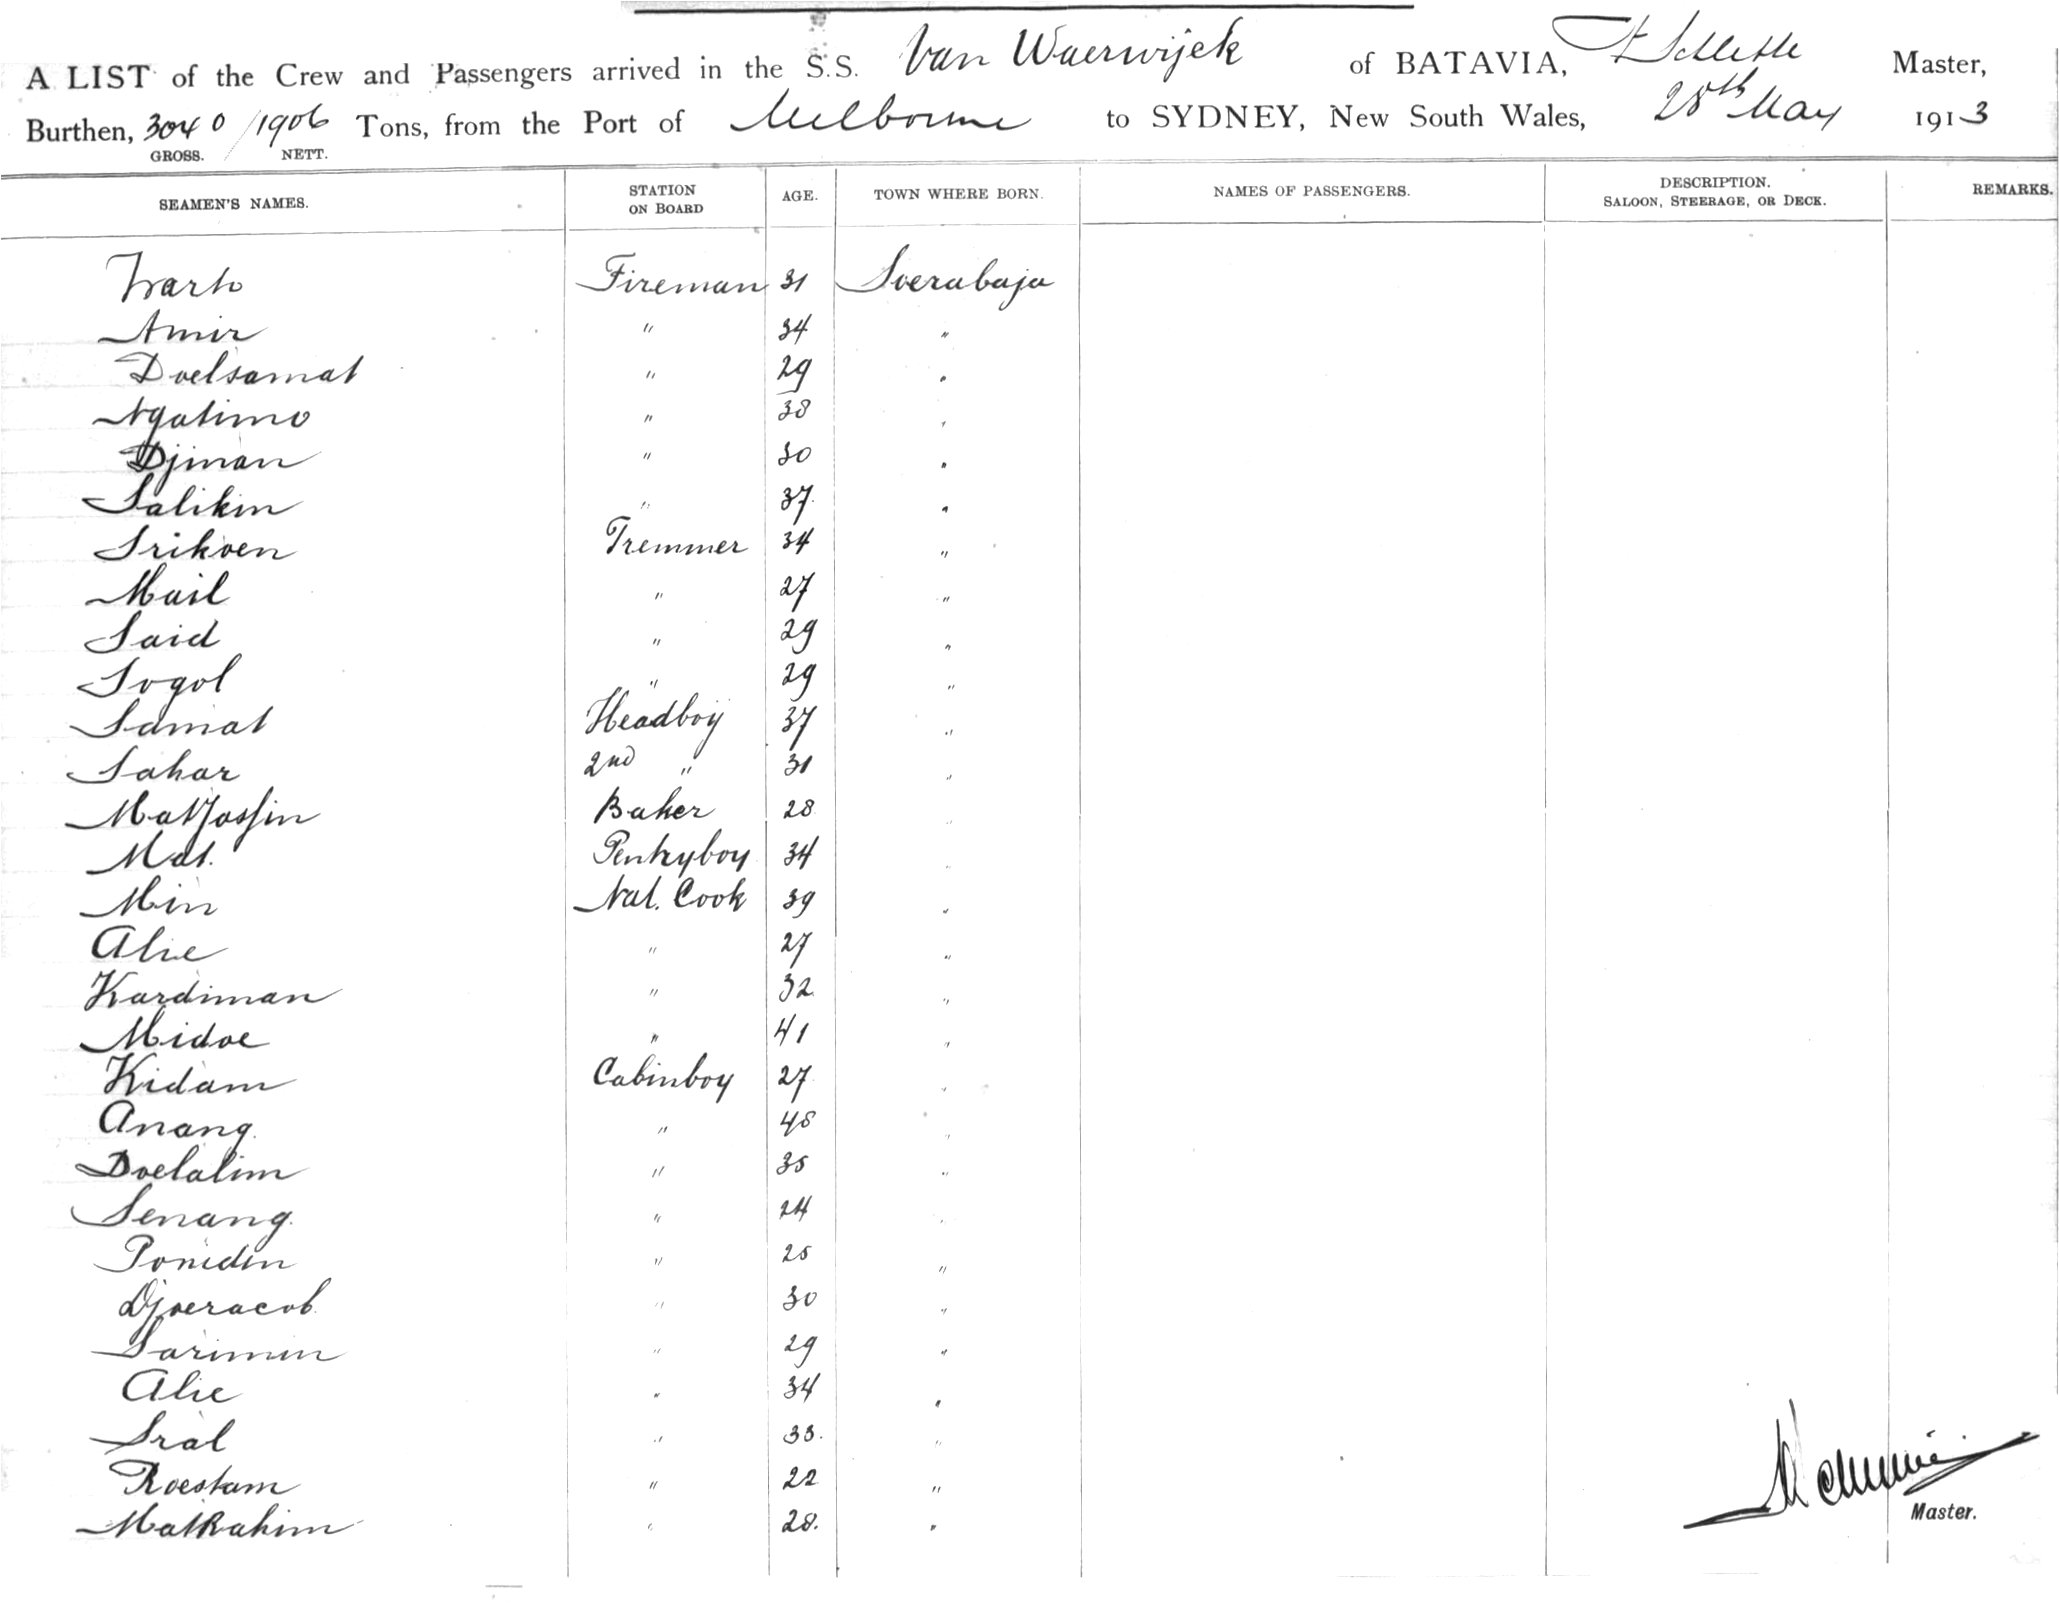 A LIST of the Crew and Passengers arrived in the S.S. Van Waerwijck of BATAVIA, Master,
Burthen, 3040 / 1906 Tons, from the Port of Melbourne to SYDNEY, New South Wales, 28th May 1913
GROSS. NETT.
SEAMEN'S NAMES. STATION ON BOARD AGE. TOWN WHERE BORN. NAMES OF PASSENGERS. DESCRIPTION. SALOON, STEERAGE, OR DECK. REMARKS.
Fireman 31 Soerabaja
Amir " 34 "
Doelsamat " 29 "
Ngatimo " 38 "
Djiman " 30 "
Salikin " 37 "
Srikoen Tremmer 34 "
Mail " 27 "
Said " 29 "
Sogol " 29 "
Samat Headboy 37 "
Sahar 2nd " 31 "
MatJassin Baker 28 "
Mat. Pentryboy 34 "
Min Nat. Cook 39 "
Alie " 27 "
Kardiman " 32 "
Midoe " 41 "
Kidam Cabinboy 27 "
Anang. " 48 "
Doelalim " 35 "
Senang. " 24 "
Ponidin " 25 "
Djoeracob. " 30 "
Sarimin " 29 "
Alie " 34 "
Sral " 33. "
Roestam " 22 "
MatRahim " 28. "
Master.